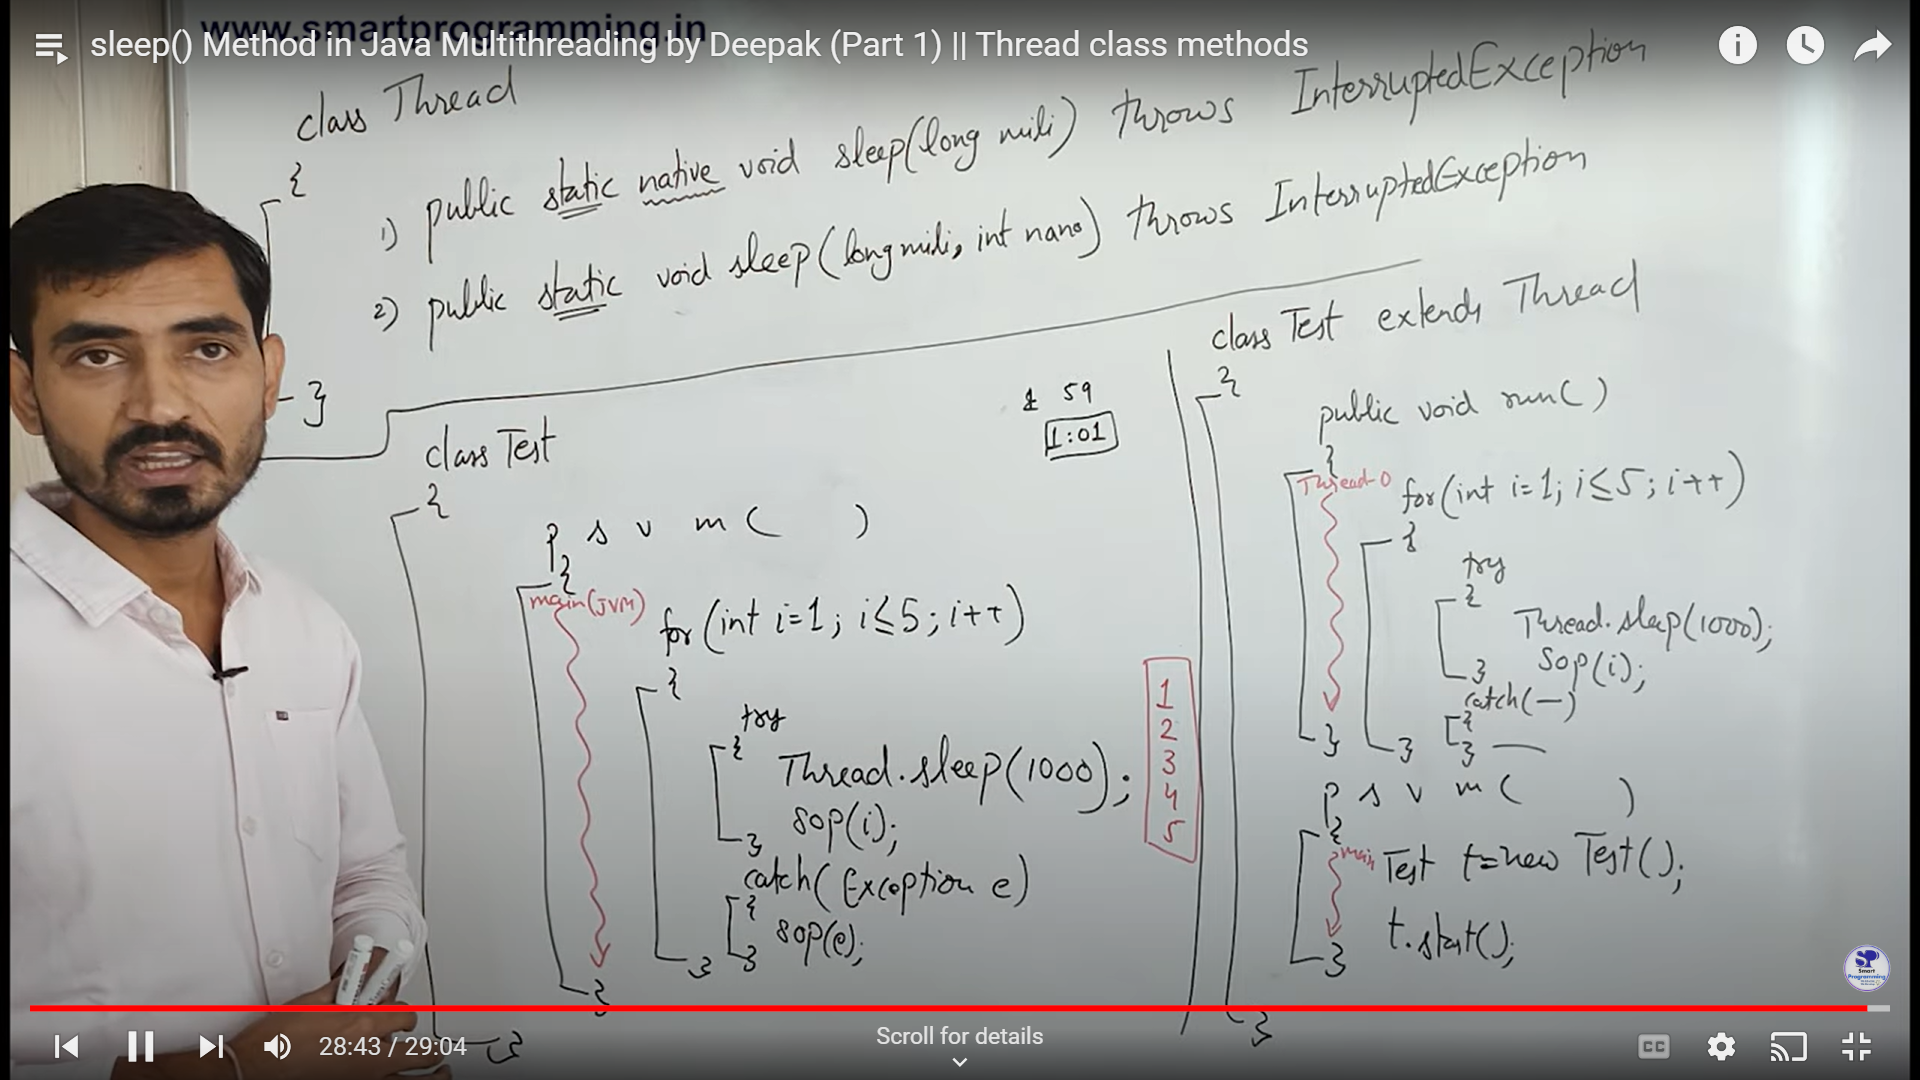 www.smartprogramming.in
sleep() Method in Java Multithreading by Deepak (Part 1) || Thread class methods
class Thread
{
1) public static native void sleep(long mili) throws InterruptedException
2) public static void sleep(long mili, int nano) throws InterruptedException
}
1 59
1:01
class Test
{
p s v m ( )
{
main(JVM)
for(int i=1; i≤5; i++)
{
try
{
Thread.sleep(1000);
sop(i);
}
catch(Exception e)
{
sop(e);
}
}
}
}
1
2
3
4
5
class Test extends Thread
{
public void run( )
{
Thread-0
for(int i=1; i≤5; i++)
{
try
{
Thread.sleep(1000);
Sop(i);
}
catch(—)
{
}
}
}
p s v m ( )
{
main
Test t=new Test();
t.start();
}
}
SP
Smart
Programming
28:43 / 29:04
Scroll for details
CC